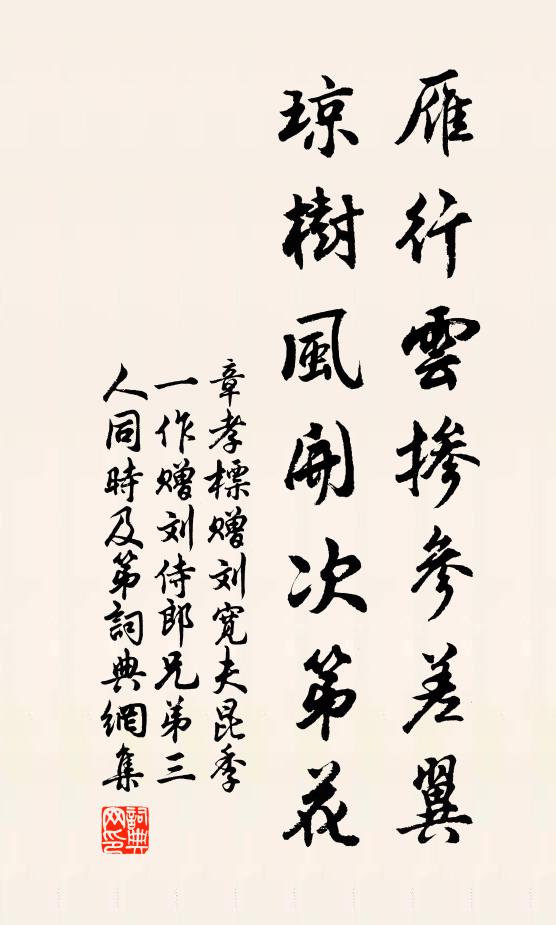 雁行雲摻參差翼
琼樹風開次第花
章孝標贈刘寬夫昆季
一作赠刘侍郎兄弟三
人同時及第詞典網集
詞典网印